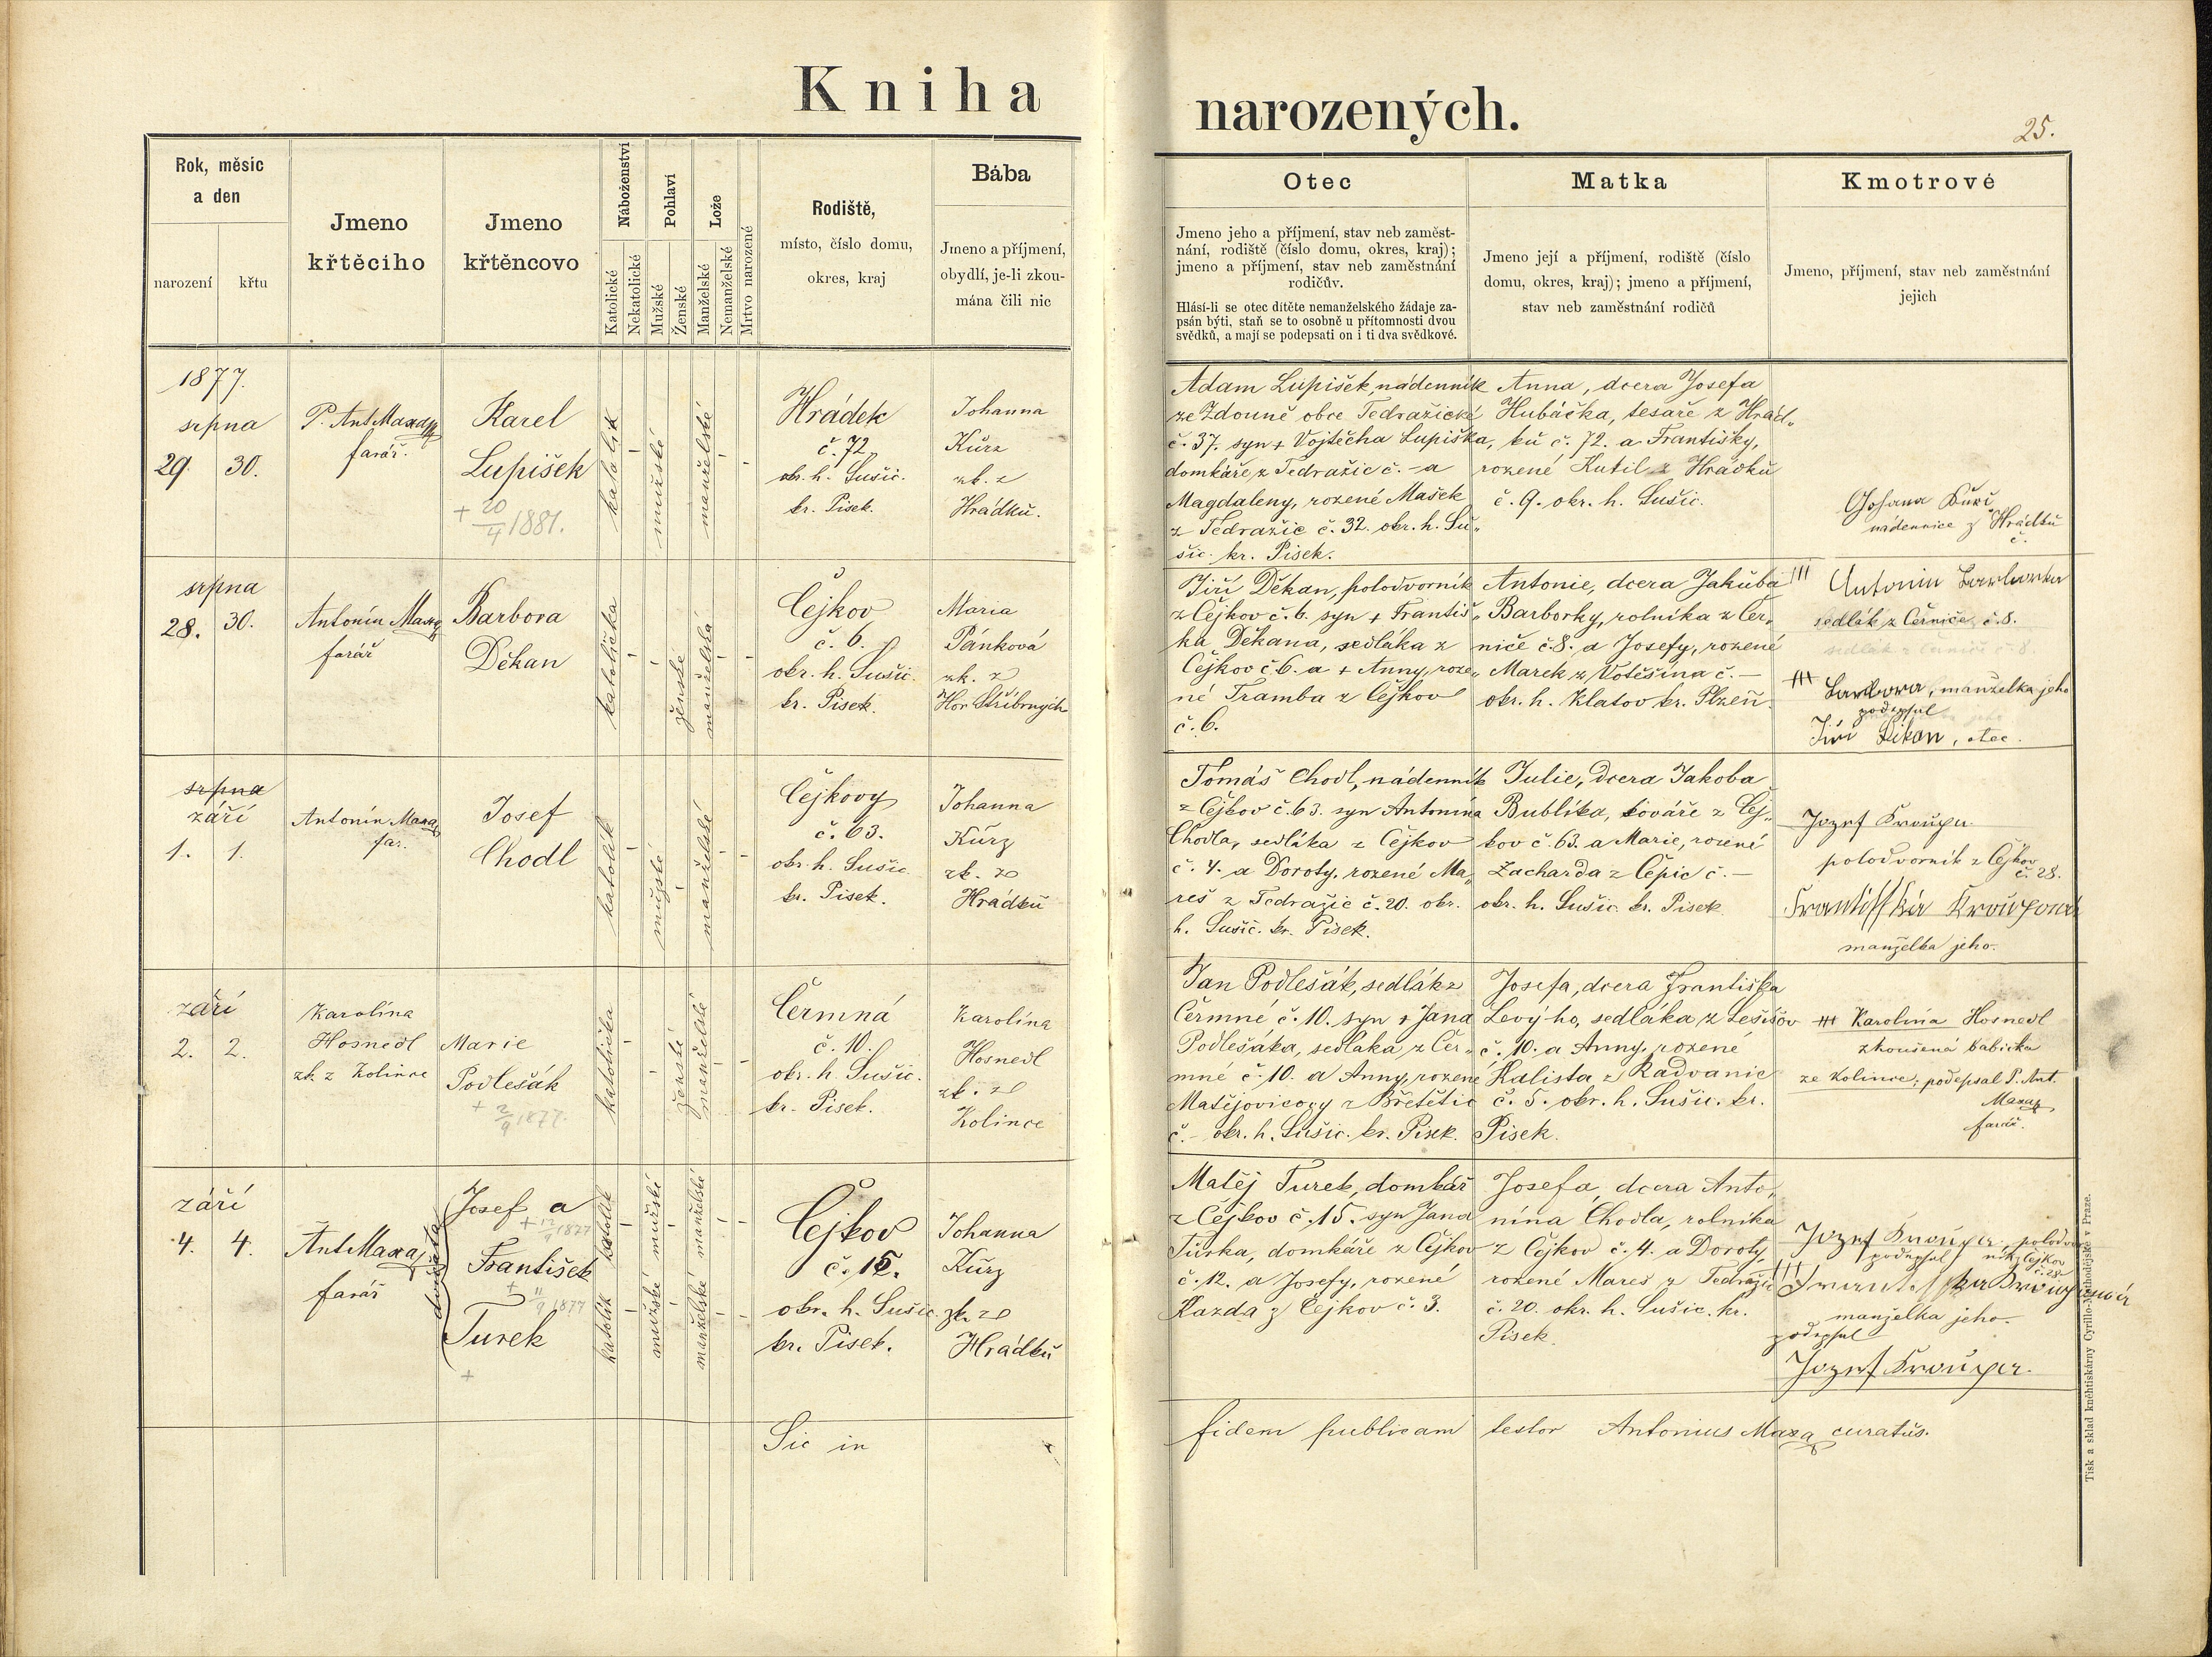 Kniha narozených.
25.
Rok, měsíc
a den
narození
křtu
Jmeno
křtěciho
Jmeno
křtěncovo
Náboženství
Katolické
Nekatolické
Pohlaví
Mužské
Ženské
Lože
Manželské
Nemanželské
Mrtvo narozené
Rodiště,
místo, číslo domu,
okres, kraj
Bába
Jmeno a příjmení,
obydlí, je-li zkou-
mána čili nic
Otec
Jmeno jeho a příjmení, stav neb zaměst-
nání, rodiště (číslo domu, okres, kraj);
jmeno a příjmení, stav neb zaměstnání
rodičův.
Hlásí-li se otec dítěte nemanželského žádaje za-
psán býti, staň se to osobně u přítomnosti dvou
svědků, a mají se podepsati on i ti dva svědkové.
Matka
Jmeno její a příjmení, rodiště (číslo
domu, okres, kraj); jmeno a příjmení,
stav neb zaměstnání rodičů
Kmotrové
Jmeno, příjmení, stav neb zaměstnání
jejich
1877.
srpna
29. 30.
P. Ant. Maxa
farář.
Karel
Lupíšek
+ 20/4 1881.
katolík
mužské
manželské
Hrádek
č. 72.
ok. h. Sušic.
kr. Pisek.
Johanna
Kůrz
zk. z
Hrádku.
Adam Lupíšek, nádenník
ze Zdouně obce Tedražické
č. 37. syn + Vojtěcha Lupíška,
domkáře z Tedražic č. - a
Magdaleny, rozené Mašek
z Tedražic č. 32. okr. h. Su-
šic. kr. Pisek.
Anna, dcera Josefa
Hubáčka, tesaře z Hrád-
ku č. 72. a Františky,
rozené Kutil z Hrádku
č. 9. okr. h. Sušic.
nádennice z Hrádku
č.
srpna
28. 30.
Antonín Maxa
farář
Barbora
Děkan
katolička
ženské
manželská
Čejkov
č. 6.
okr. h. Sušic.
kr. Pisek.
Maria
Pánková
zk. z
Hor Stříbrných
Jiří Děkan, polodvorník
z Čejkov č. 6. syn + Františ-
ka Děkana, sedláka z
Čejkov č. 6. a + Anny, roze-
né Tramba z Čejkov
č. 6.
Antonie, dcera Jakuba
Barborky, rolníka z Čer-
niče č. 8. a Josefy, rozené
Marek z Votěšína č. -
okr. h. Klatov kr. Plzeň.
+++ Antonin Barborka
sedlák z Černíče č. 8.
+++ Barbora, manželka jeho
podepsal
Jiří Děkan, otec.
srpna
září
1. 1.
Antonín Maxa
far.
Josef
Chodl
katolík
mužské
manželské
Čejkovy
č. 63.
okr. h. Sušic.
kr. Pisek.
Johanna
Kürz
zk. ze
Hrádku
Tomáš Chodl, nádenník
z Čejkov č. 63. syn Antonína
Chodla, sedláka z Čejkov
č. 4. a Doroty, rozené Ma-
reš z Tedražic č. 20. okr.
h. Sušic. kr. Pisek.
Julie, dcera Jakoba
Bublíka, kováře z Čej-
kov č. 63. a Marie, rozené
Zacharda z Čepic č. -
okr. h. Sušic. kr. Pisek
Jozef Kroupa
polodvorník z Čejkov
č. 28.
Frantisska Kroupová
manželka jeho.
září
2. 2.
Karolína
Hosnedl
zk. z Kolince
Marie
Podlešák
+ 2/9 1877.
katolička
ženské
manželské
Čermná
č. 10.
okr. h. Sušic.
kr. Pisek.
Karolína
Hosnedl
zk. ze
Kolince
Jan Podlešák, sedlák z
Čermné č. 10. syn + Jana
Podlešáka, sedláka z Čer-
mné č. 10. a Anny, rozené
Matějovicovy z Břetětic
č. - okr. h. Sušic. kr. Pisek.
Josefa, dcera Františka
Levýho, sedláka z Lešišov
č. 10. a Anny, rozené
Kalista z Radvanic
č. 5. okr. h. Sušic. kr.
Pisek.
+++ Karolina Hosnedl
zkoušená babička
ze Kolince; podepsal P. Ant.
Maxa,
farář.
září
4. 4.
Ant. Maxa,
farář
dvojčata
Josef a
+ 12/9 1877
František
+ 11/9 1877
Turek
+
katolík katolík
mužské mužské
manželské manželské
Čejkov
č. 15.
okr. h. Sušic.
kr. Pisek.
Johanna
Kürz
zk. ze
Hrádku
Matěj Turek, domkář
z Čejkov č. 15. syn Jana
Turka, domkáře z Čejkov
č. 12. a Josefy, rozené
Kazda z Čejkov č. 3.
Josefa, dcera Anto-
nína Chodla, rolníka
z Čejkov č. 4. a Doroty,
rozené Mareš z Tedražic
č. 20. okr. h. Sušic. kr.
Pisek.
Jozef Kroupa, polodvor-
podepsal ník z Čejkov
č. 28.
+++ Frantisska Kroupová
manželka jeho.
podepsal
Jozef Kroupa.
Sic in fidem publicam testor Antonius Maxa, curatus.
Tisk a sklad kněhtiskárny Cyrillo-Methodějské v Praze.